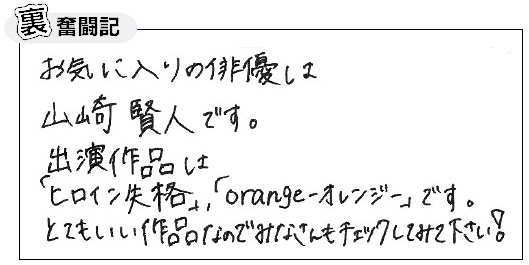 裏奮闘記
お気に入りの俳優は
山﨑賢人です。
出演作品は
「ヒロイン失格」,「orange-オレンジー」です。
とてもいい作品なのでみなさんもチェックしてみて下さい!